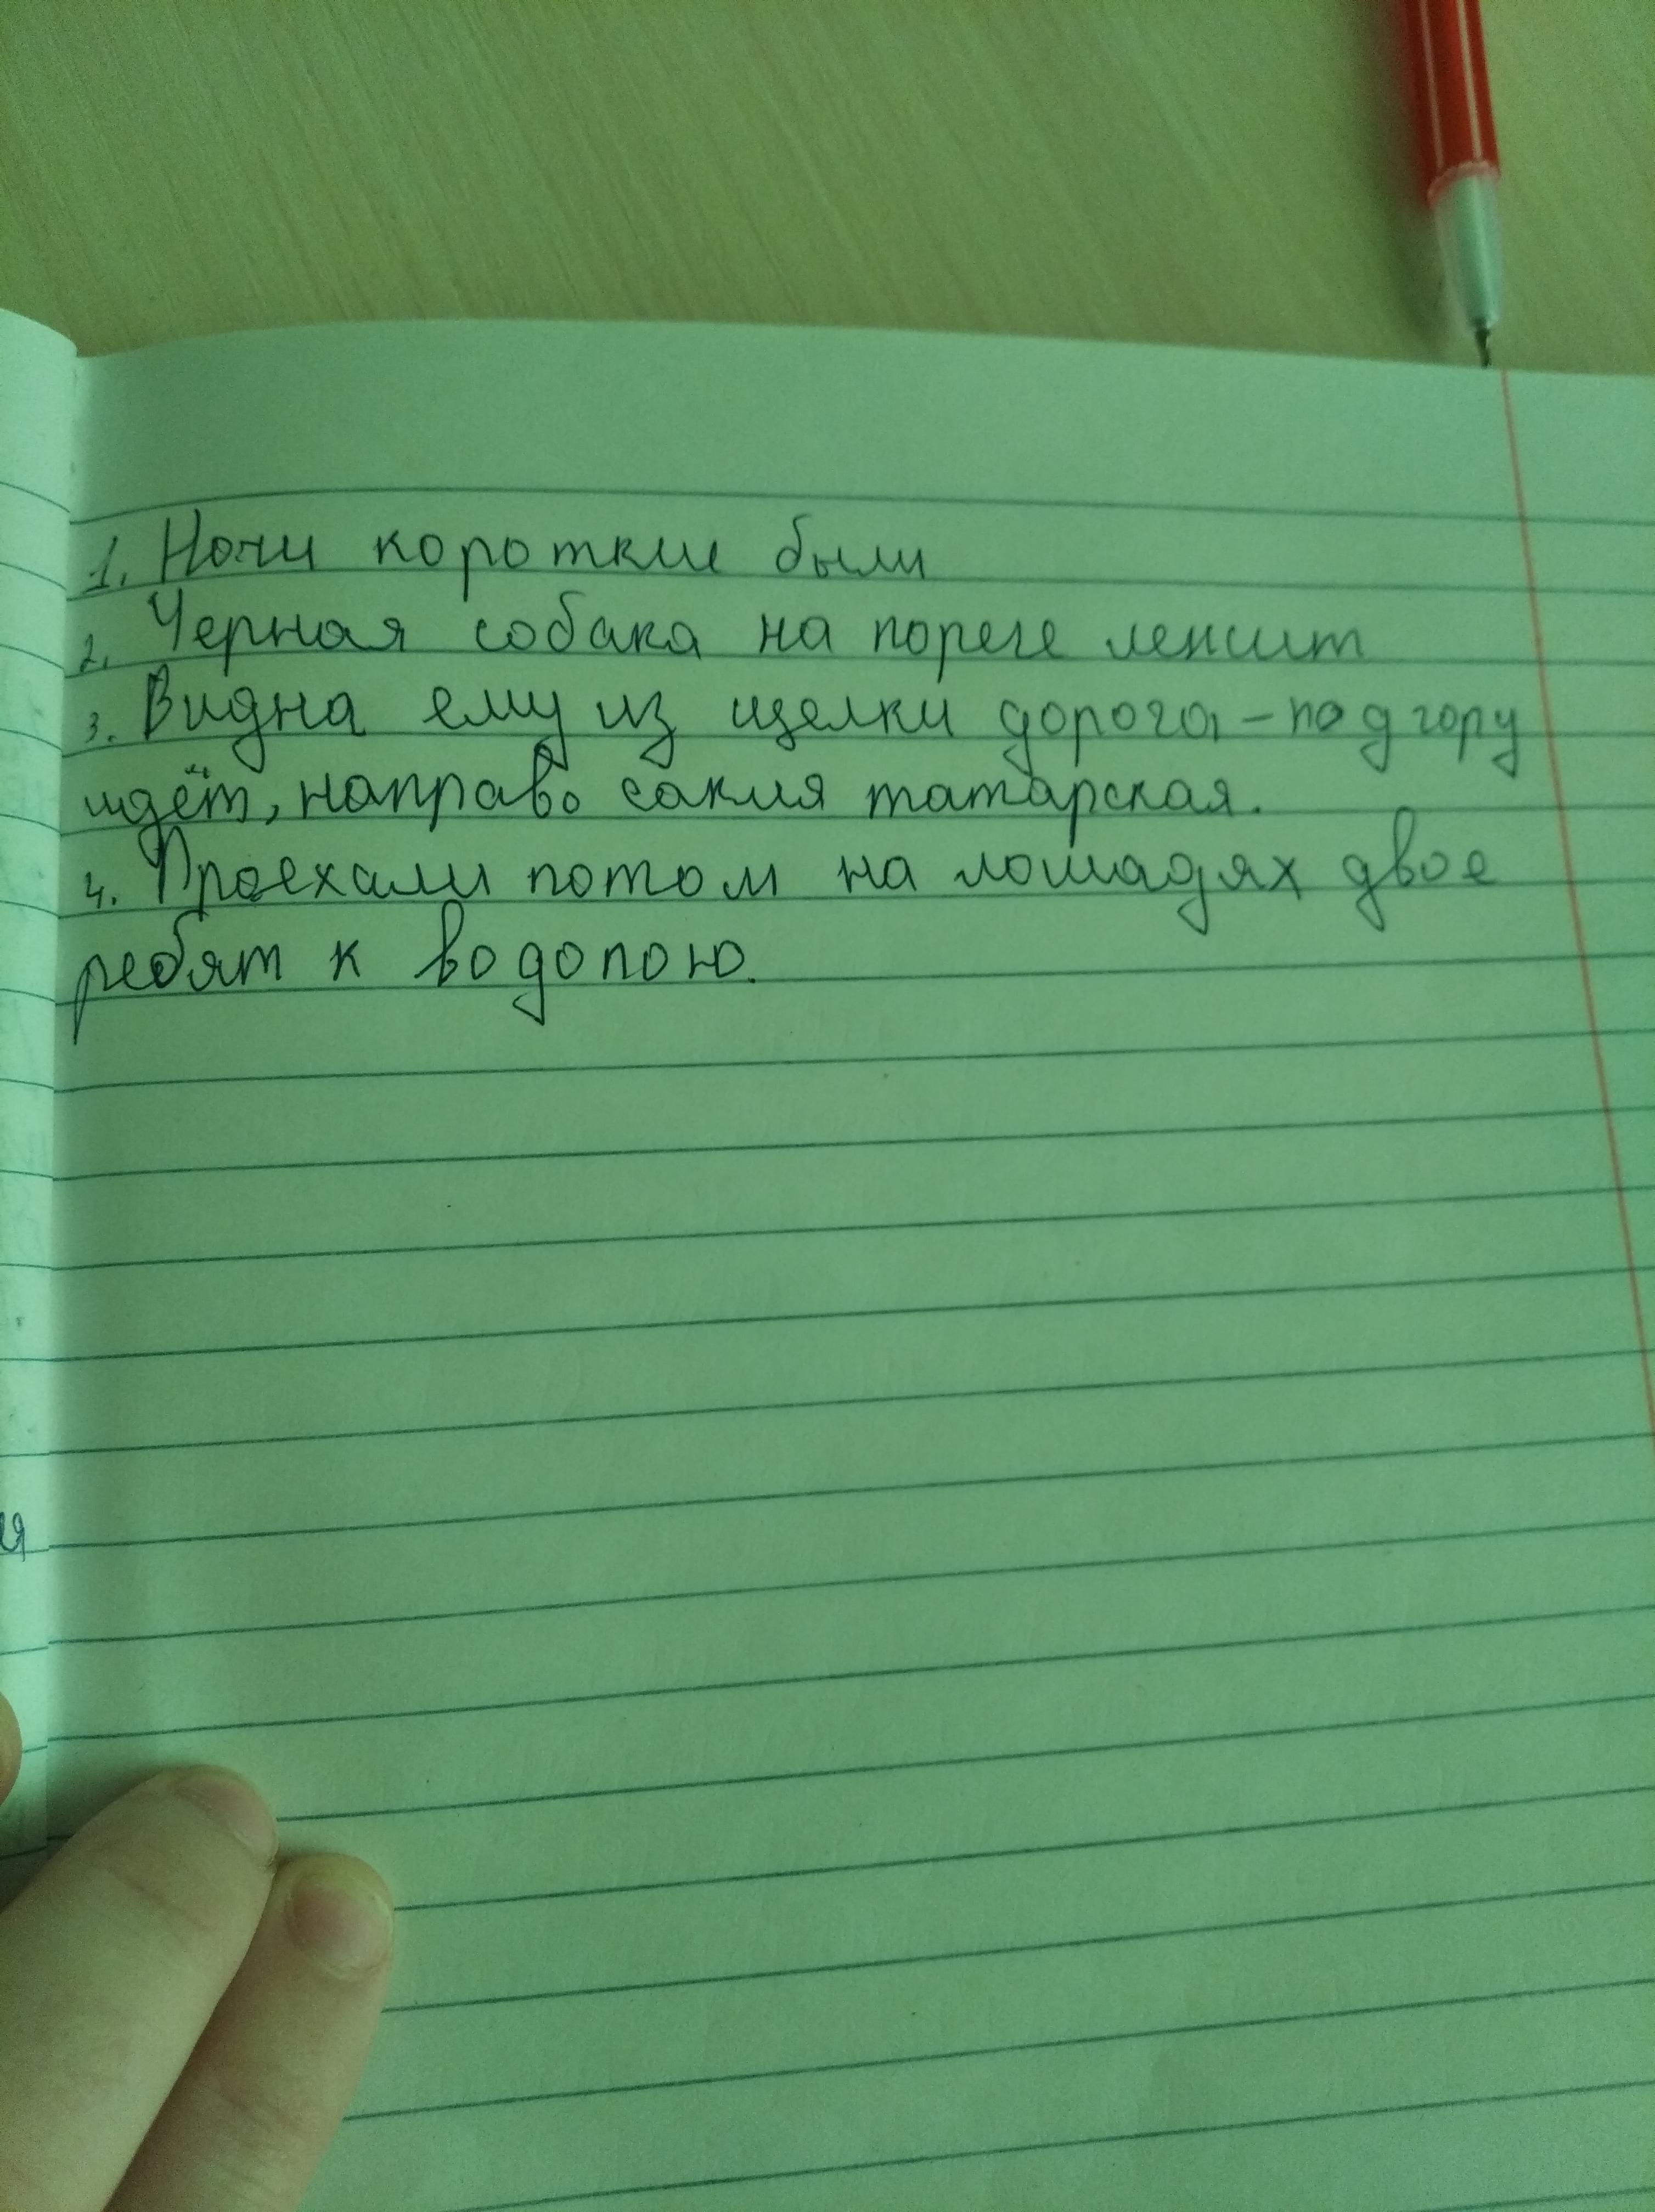 1. Ночи короткие были
2. Черная собака на пореге лежит
3. Видна ему из щелки дорога - под гору
идёт, направо сакля татарская.
4. Проехали потом на лошадях двое
ребят к водопою.
я